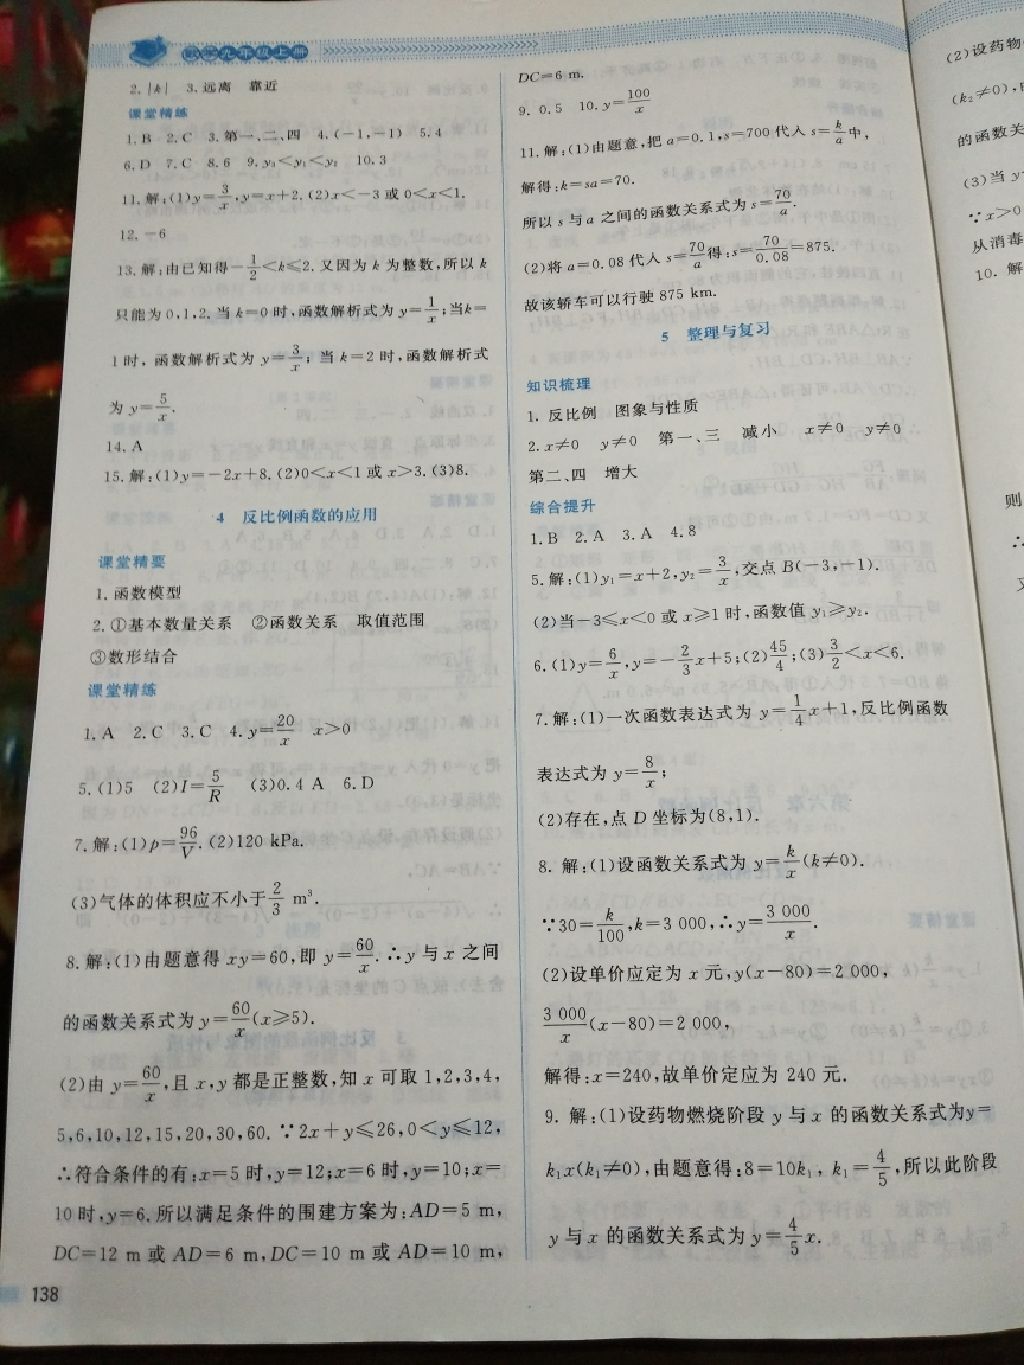 数学九年级上册
2. |k| 3. 远离 靠近
课堂精练
1. B 2. C 3. 第一、二、四 4. (-1,-1) 5. 4
6. D 7. C 8. 6 9. y₃<y₁<y₂ 10. 3
11. 解:(1)y=3/x,y=x+2. (2)x<-3或0<x<1.
12. -6
13. 解:由已知得-1/2<k≤2.又因为k为整数,所以k
只能为0,1,2.当k=0时,函数解析式为y=1/x;当k=
1时,函数解析式为y=3/x;当k=2时,函数解析式
为y=5/x.
14. A
15. 解:(1)y=-2x+8. (2)0<x<1或x>3. (3)8.
4 反比例函数的应用
课堂精要
1. 函数模型
2. ①基本数量关系 ②函数关系 取值范围
③数形结合
课堂精练
1. A 2. C 3. C 4. y=20/x x>0
5. (1)5 (2)I=5/R (3)0.4 A 6. D
7. 解:(1)p=96/V. (2)120 kPa.
(3)气体的体积应不小于2/3 m³.
8. 解:(1)由题意得xy=60,即y=60/x.∴y与x之间
的函数关系式为y=60/x(x≥5).
(2)由y=60/x,且x,y都是正整数,知x可取1,2,3,4,
5,6,10,12,15,20,30,60.∵2x+y≤26,0<y≤12,
∴符合条件的有:x=5时,y=12;x=6时,y=10;x=
10时,y=6.所以满足条件的围建方案为:AD=5 m,
DC=12 m或AD=6 m,DC=10 m或AD=10 m,
138
DC=6 m.
9. 0.5 10. y=100/x
11. 解:(1)由题意,把a=0.1,s=700代入s=k/a中,
解得:k=sa=70.
所以s与a之间的函数关系式为s=70/a.
(2)将a=0.08代入s=70/a得:s=70/0.08=875.
故该轿车可以行驶875 km.
5 整理与复习
知识梳理
1. 反比例 图象与性质
2. x≠0 y≠0 第一、三 减小 x≠0 y≠0
第二、四 增大
综合提升
1. B 2. A 3. A 4. 8
5. 解:(1)y₁=x+2,y₂=3/x,交点B(-3,-1).
(2)当-3≤x<0或x≥1时,函数值y₁≥y₂.
6. (1)y=6/x,y=-2/3x+5;(2)45/4;(3)3/2<x<6.
7. 解:(1)一次函数表达式为y=1/4x+1,反比例函数
表达式为y=8/x;
(2)存在,点D坐标为(8,1).
8. 解:(1)设函数关系式为y=k/x(k≠0).
∵30=k/100,k=3 000,∴y=3 000/x.
(2)设单价应定为x元,y(x-80)=2 000,
3 000/x(x-80)=2 000,
解得:x=240,故单价定应为240元.
9. 解:(1)设药物燃烧阶段y与x的函数关系式为y=
k₁x(k₁≠0),由题意得:8=10k₁,k₁=4/5,所以此阶段
y与x的函数关系式为y=4/5x.
(2)设药物
(k₂≠0),
的函数关
(3)当y
∵x>0
从消毒
10. 解
则
∴